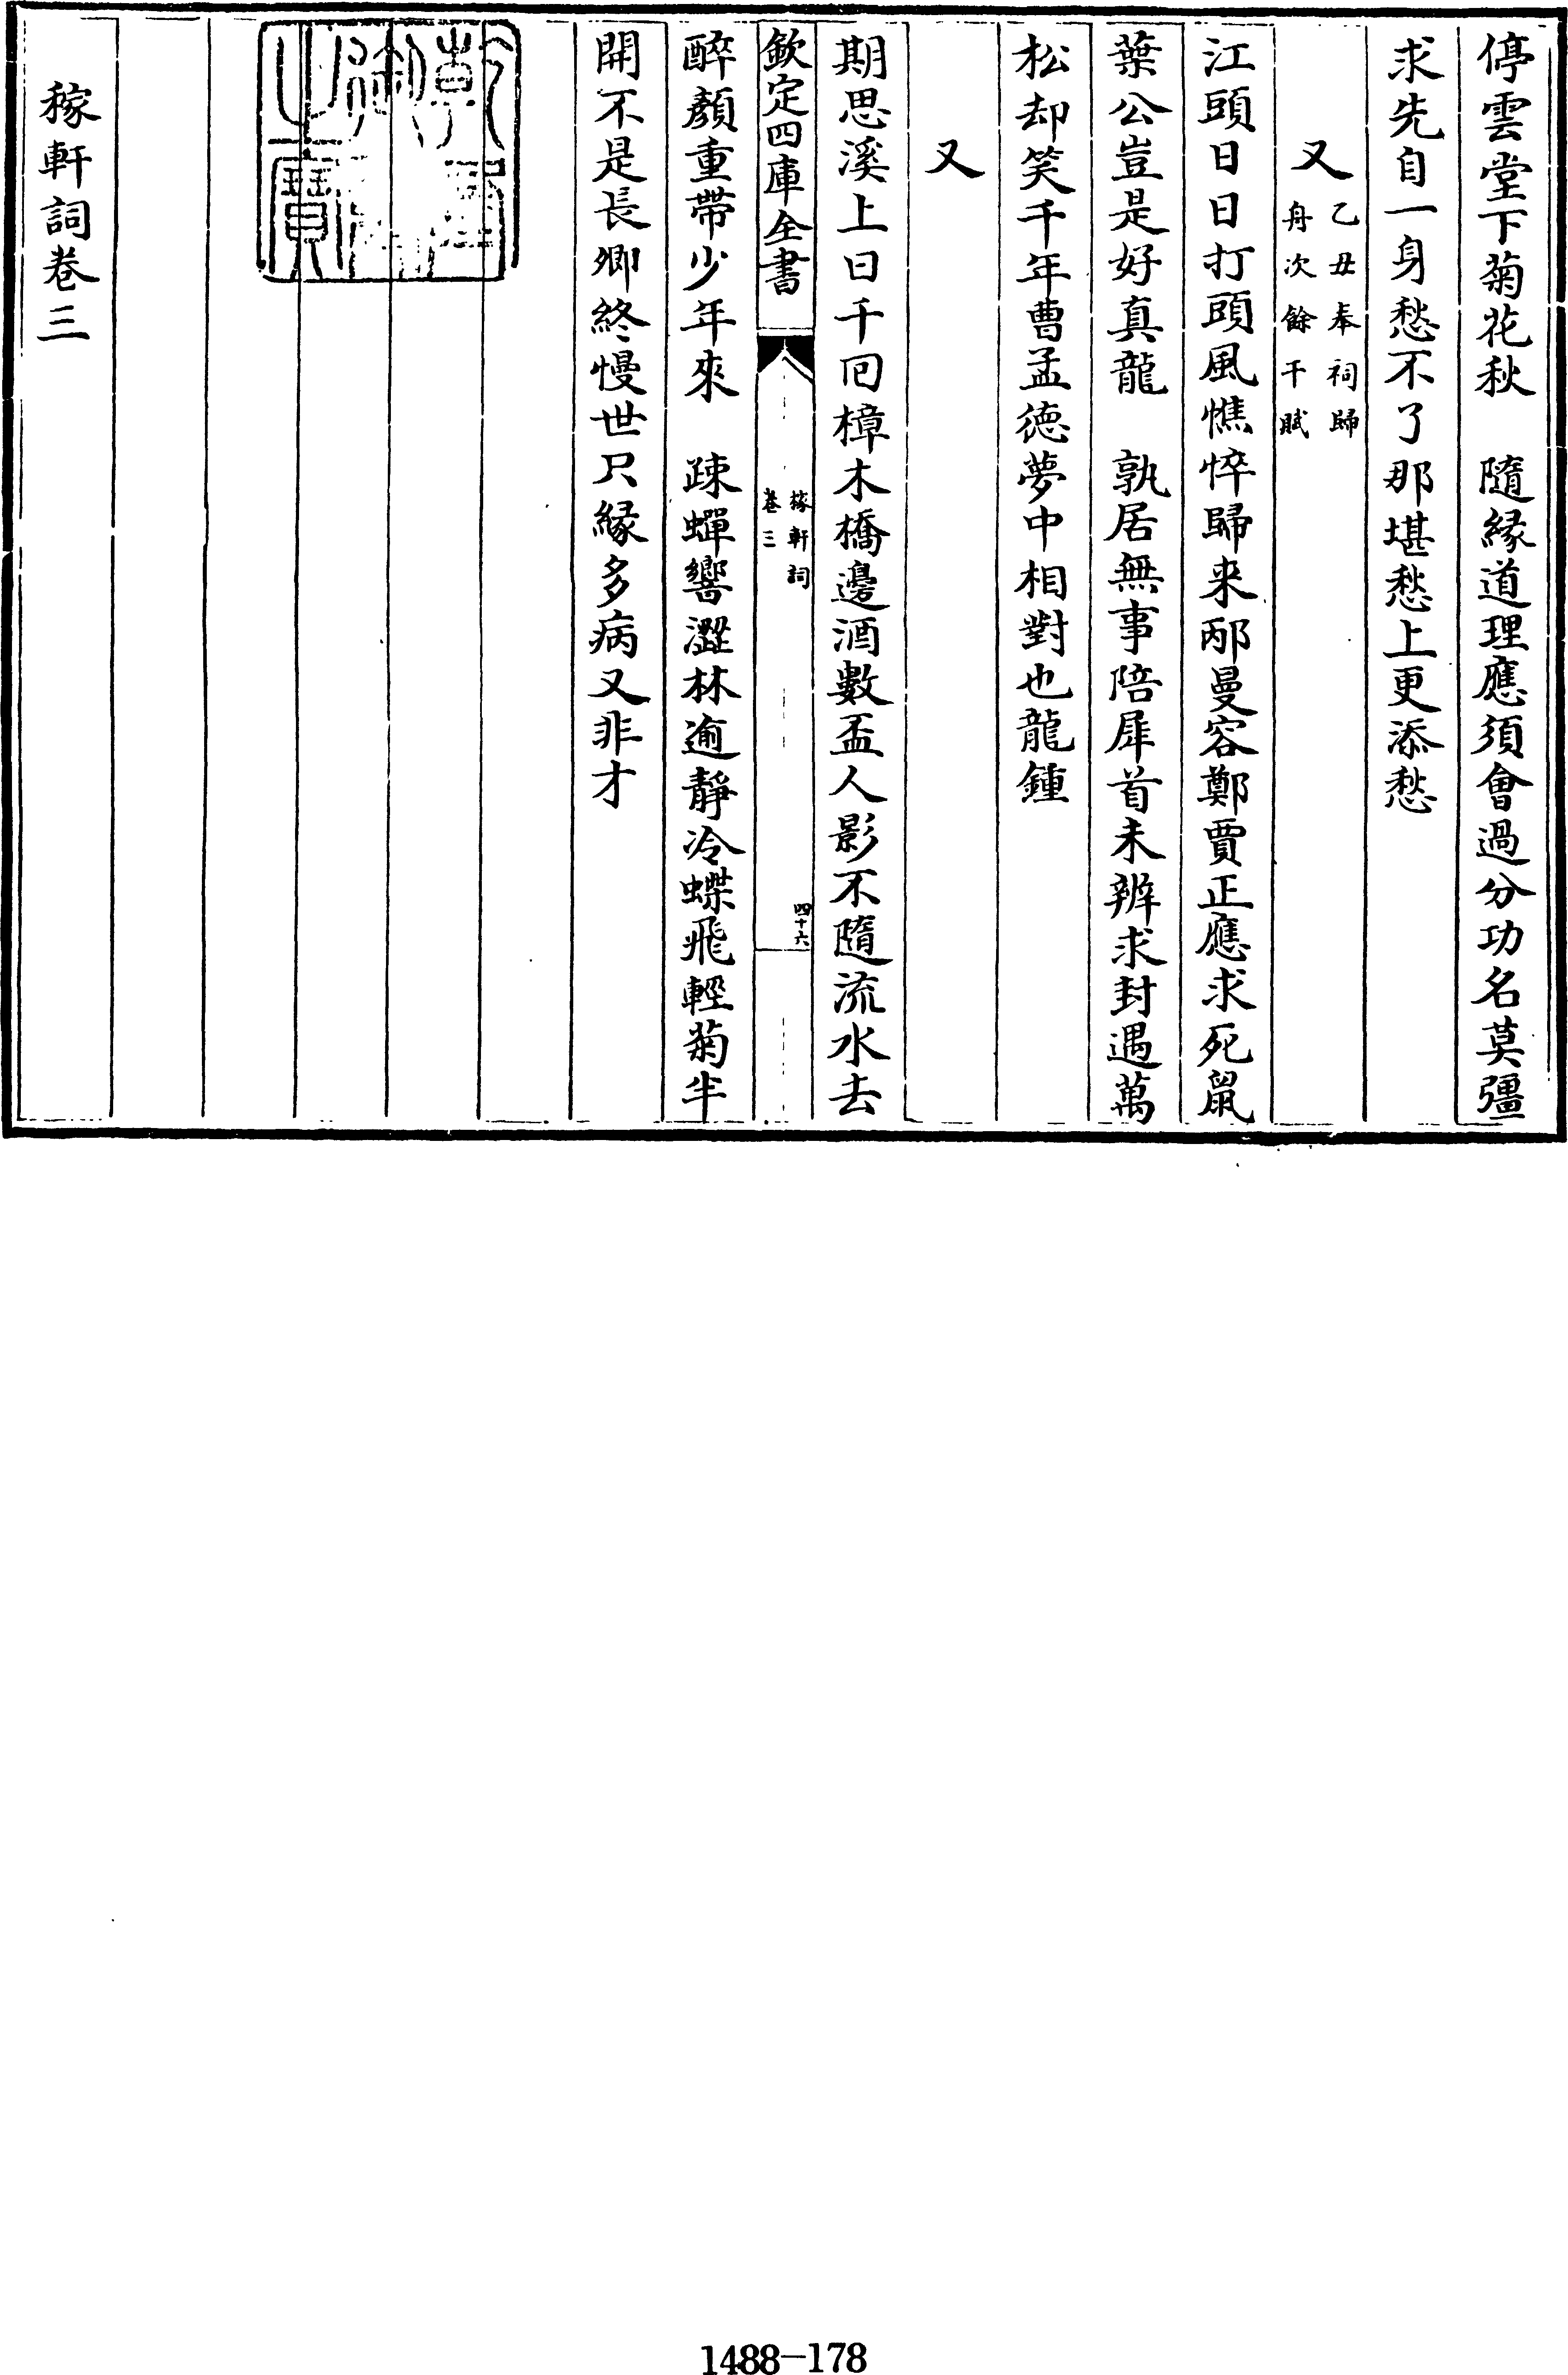 停雲堂下菊花秋　隨緣道理應須會過分功名莫彊
求先自一身愁不了那堪愁上更添愁
又乙丑奉祠歸
舟次餘干賦
江頭日日打頭風憔悴歸来邴曼容鄭賈正應求死鼠
葉公豈是好真龍　孰居無事陪犀首未辦求封遇萬
松却笑千年曹孟德夢中相對也龍鍾
又
期思溪上日千囘樟木橋邊酒數盃人影不隨流水去
欽定四庫全書
稼軒詞
卷三
四十六
醉顏重帶少年來　疎蟬響澀林逾靜冷蝶飛輕菊半
開不是長卿終慢世只緣多病又非才
稼軒詞卷三
1488-178